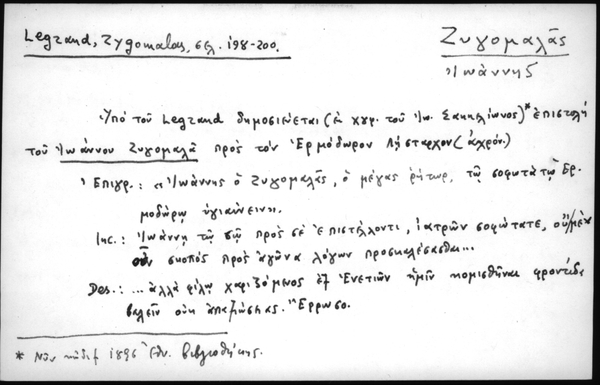 Legrand, Zygomalas, σελ. 198-200.
Ζυγομαλᾶς
Ἰωάννης
Ὑπὸ τοῦ Legrand δημοσιεύεται (ἐκ χφ. τοῦ Ἰω. Σακκελίωνος)* ἐπιστολὴ
τοῦ Ἰωάννου Ζυγομαλᾶ πρὸς τὸν Ἑρμόδωρον Λήσταρχον (ἀχρόν.)
Ἐπιγρ.: «Ἰωάννης ὁ Ζυγομαλᾶς, ὁ μέγας ῥήτωρ, τῷ σοφωτάτῳ Ἑρ-
μοδώρῳ ὑγιαίνειν».
Inc.: Ἰωάννῃ τῷ σῷ πρὸς σὲ ἐπιστέλλοντι, ἰατρῶν σοφώτατε,
σκοπὸς πρὸς ἀγῶνα λόγων προσκαλέσασθαι...
Des.: ... ἀλλὰ φίλῳ χαριζόμενος ἐξ Ἐνετιῶν ἡμῖν κομισθῆναι φροντίδα
βαλεῖν οὐκ ἀπαξιώσῃς. Ἔρρωσο.
* Νῦν κῶδιξ 1896 Ἐθν. Βιβλιοθήκης.